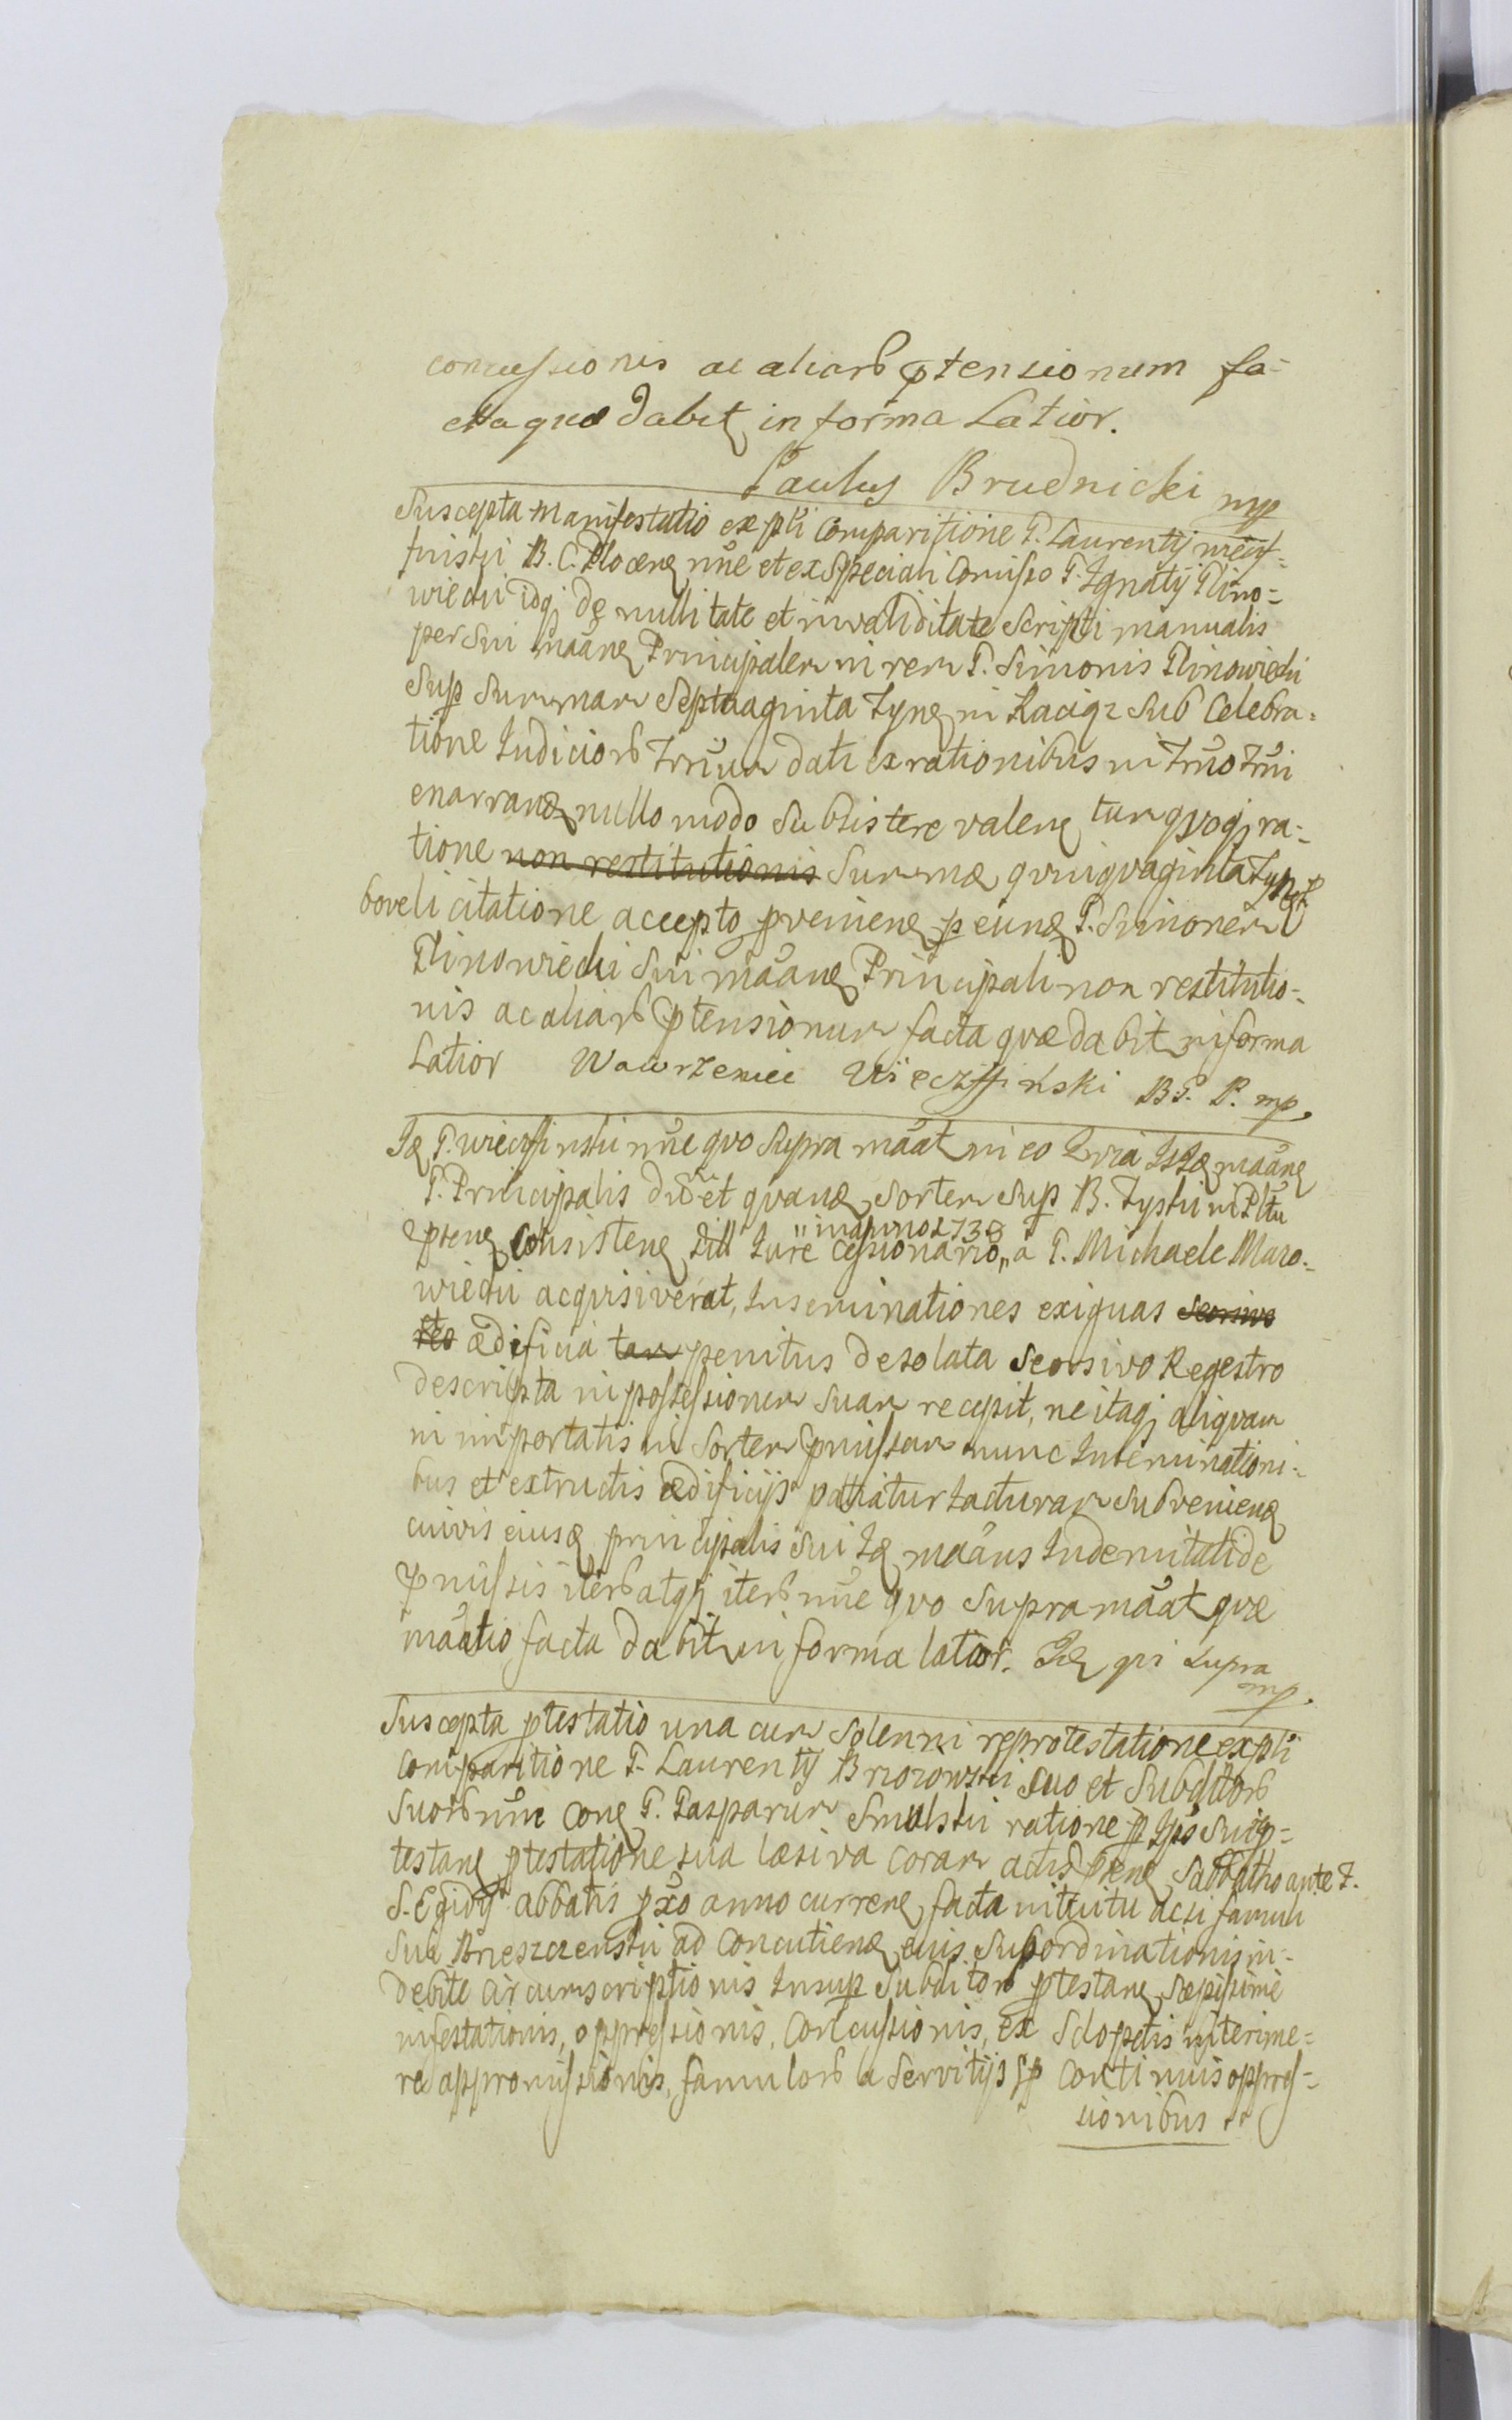 concussionis ac aliarb ptensionum fa-
cta quæ dabit in forma Latior.
Paulus Brudnicki mp
Suscepta Manifestatio ex pli Comparitione G. Laurentij Wiecz-
finski B. C. Plocen nne et ex Speciali Comisso G. Ignatij Glino-
wiecki idq de nullitate et invaliditate Scripti manualis
per Sui maane Principalem in rem G. Simonis Glinowiecki
Sup Summam Septuaginta Tyn in Raciąz Sub Celebra-
tione Judiciorb Trium dati ex rationibus in Tmo Tmi
enarrand nullo modo Subsistere valen tum qvoq ra-
tione non restitutionis Summæ qvinqvaginta Tyn
bove licitatione accepto pvenien p eund G. Simonem
Glinowiecki Sui maane Principali non restitutio-
nis ac aliarb ptensionum facta qvæ dabit in forma
Latior Wawrzeniec Wieczffinski B. G. P. mp.
Id G. Wieczffinski nne qvo Supra maat in eo qvia maane
G. Principalis qvand Sortem Sup B. Tyski in
pten Consisten Jure Cessionario a G. Michaele Maro-
in anno 1738
wiecki acqvisiverat, Inseminationes exiguas Seorsivo
ædificia tam penitus desolata Seorsivo Regestro
descripta in possessionem Suam recepit, ne itaq aliqvam
in importatis in Sortem pmissam nunc Inseminationi-
bus et extructis ædificijs patiatur Jacturam Subveniend
cuivis eiusd principalis Sui Id maans Indemnitati de
pmissis iterb atq iterb nne qvo Supra maat qvæ
maatio facta dabit in forma latior. Id qvi Supra
mp.
Suscepta ptestatio una cum Solenni reprotestatione ex pli
Comparitione G. Laurentij Brzozowski Suo et Subditorb
Suorb nne Con G. Gasparum Smulski ratione p Ips Sui p-
testan ptestatione sua læsiva coram actis pten Sabbatho ante F.
S. Egidij abbatis pxo anno curren facta intuitu acsi famuli
Sui ad Concutiend eius Subordinationis in-
debite Circumscriptionis Insup Subditorb ptestan Sæpissime
infestationis, oppressionis, Concussionis, ex Sclopetis interime-
re appromissionis, famulorb a Servitijs Sp Continuis oppres-
sionibus